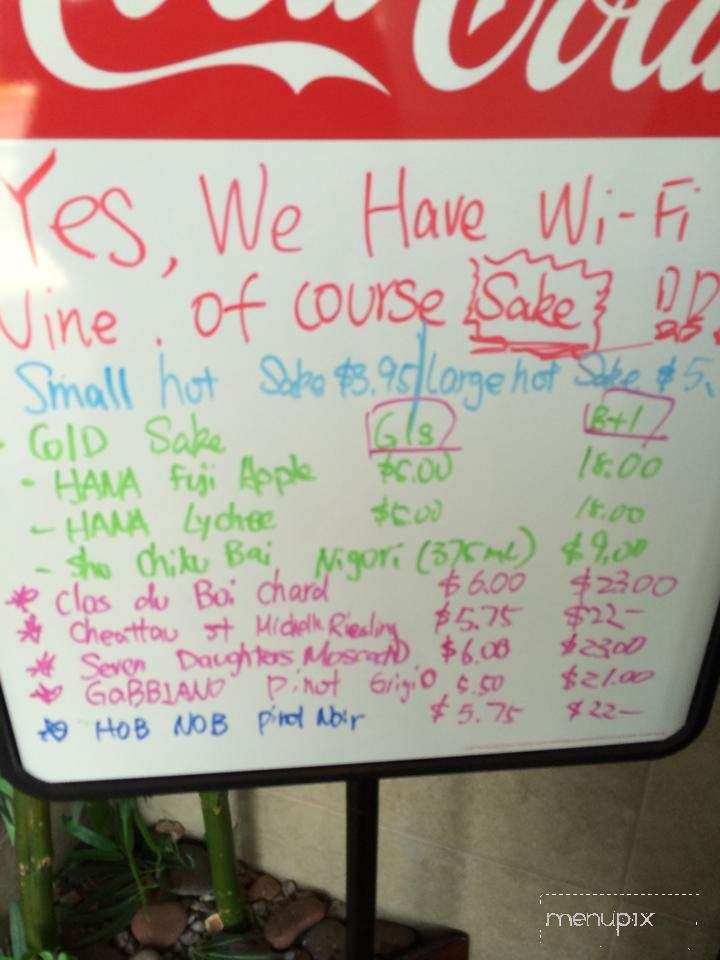 Coca Cola
Yes, We Have Wi-Fi
Wine. of course Sake
Small hot Sake $3.95 Large hot Sake $5.
Cold Sake Gls Btl
- HANA Fuji Apple $5.00 18.00
- HANA Lychee $5.00 18.00
- Sho Chiku Bai Nigori (375mL) $9.00
Clos du Boi Chard $6.00 $23.00
Cheattau st Michelle Riesling $5.75 $22-
Seven Daughters Moscato $6.00 $23.00
GaBBIANO Pinot Grigio 5.50 $21.00
HOB NOB Pinot Noir $5.75 $22-
menupix